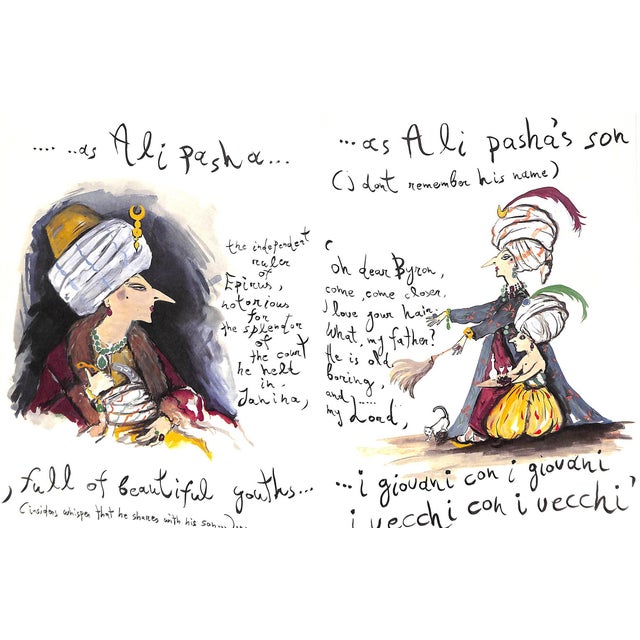 .... ..as Ali pasha...
the independent
ruler
of
Epirus,
notorious
for
the splendor
of
the court
he held
in
Janina,
, full of beautiful youths...
(insiders whisper that he shares with his son...)...
...as Ali pasha's son
(I dont remember his name)
'oh dear Byron,
come, come closer,
I love your hair,
What, my father?
He is old
boring,
and ......
my Lord,
...i giovani con i giovani
i vecchi con i vecchi'